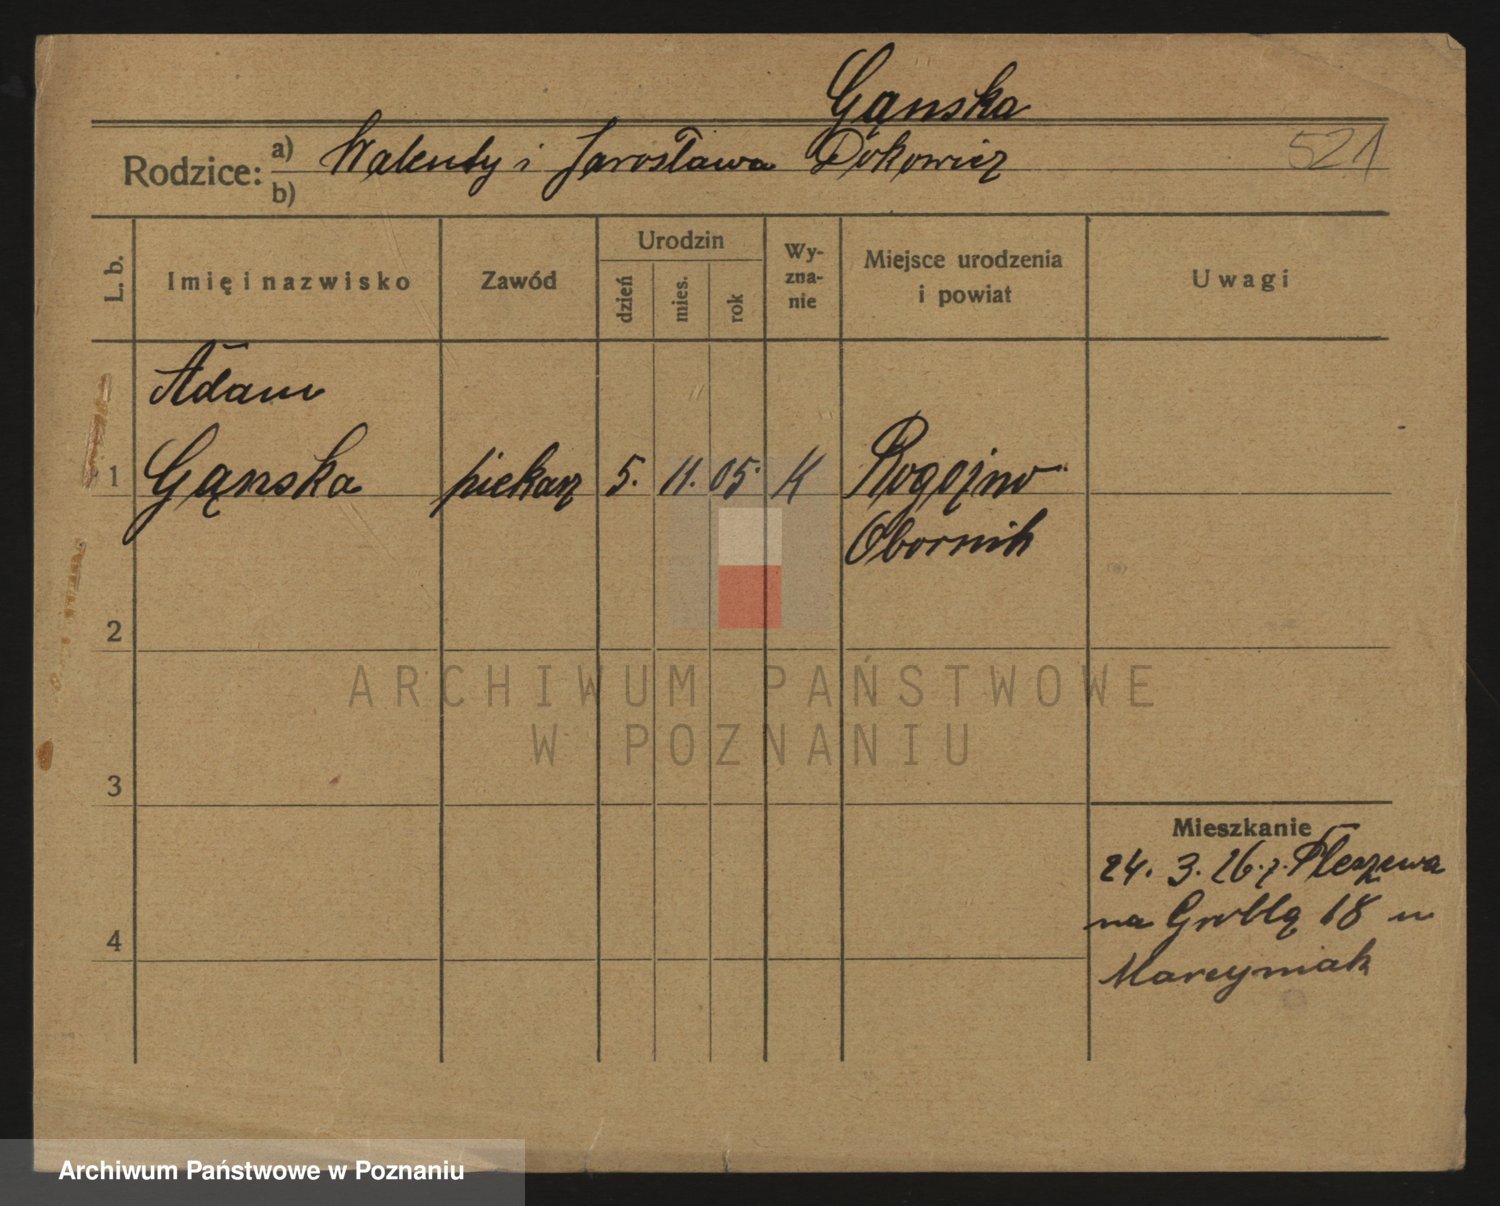 Gąnska
521
Rodzice: a) Walenty i Jarosława Dokowicz
b)
L. b.
Imię i nazwisko
Zawód
Urodzin
dzień
mies.
rok
Wy-
zna-
nie
Miejsce urodzenia
i powiat
Uwagi
Adam
1 Gąnska piekarz 5. 11. 05. K Rogoźno
Obornik
2
3
4
Mieszkanie
24. 3. 26. z. Pleszewa
na Groblą 18 u
Marcyniak
ARCHIWUM PAŃSTWOWE
W POZNANIU
Archiwum Państwowe w Poznaniu